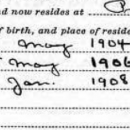 nd now resides at
of birth, and place of reside
May 1904
May 1906
Jan. 1908